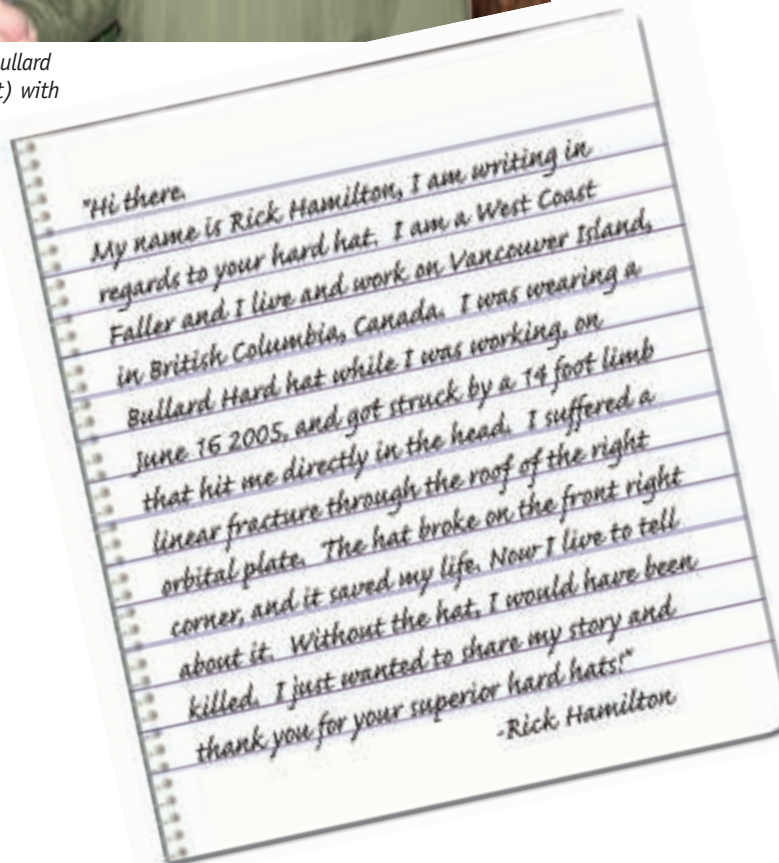 ullard
t) with
"Hi there.
My name is Rick Hamilton, I am writing in
regards to your hard hat. I am a West Coast
Faller and I live and work on Vancouver Island,
in British Columbia, Canada. I was wearing a
Bullard Hard hat while I was working, on
June 16 2005, and got struck by a 14 foot limb
that hit me directly in the head. I suffered a
linear fracture through the roof of the right
orbital plate. The hat broke on the front right
corner, and it saved my life. Now I live to tell
about it. Without the hat, I would have been
killed. I just wanted to share my story and
thank you for your superior hard hats!"
-Rick Hamilton